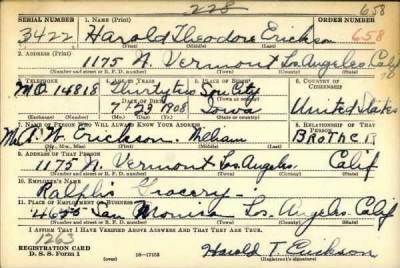 228
658
SERIAL NUMBER 1. NAME (Print) ORDER NUMBER
3422 Harold Theodore Erickson 658
(First) (Middle) (Last)
2. ADDRESS (Print)
1175 N. Vermont Los Angeles. Calif
(Number and street or R. F. D. number) (Town) (County) (State)
3. TELEPHONE 4. AGE IN YEARS 5. PLACE OF BIRTH 6. COUNTRY OF CITIZENSHIP
MO 14818 Thirty two Sou City
DATE OF BIRTH
7-23 1908 Iowa United States
7. NAME OF PERSON WHO WILL ALWAYS KNOW YOUR ADDRESS 8. RELATIONSHIP OF THAT PERSON
Mr. A. W. Erickson. William BROTHER
(Mr., Mrs., Miss) (First) (Middle) (Last)
9. ADDRESS OF THAT PERSON
1175 N. Vermont Los Angeles Calif
(Number and street or R. F. D. number) (Town) (County) (State)
10. EMPLOYER'S NAME
Ralphs Grocery
11. PLACE OF EMPLOYMENT OR BUSINESS
4655 San Monica Los. Angeles. Calif
(Number and street or R. F. D. number) (Town) (County) (State)
I AFFIRM THAT I HAVE VERIFIED ABOVE ANSWERS AND THAT THEY ARE TRUE.
1263
REGISTRATION CARD
D. S. S. Form 1 16—17105 Harold T. Erickson
(over) (Registrant's signature)